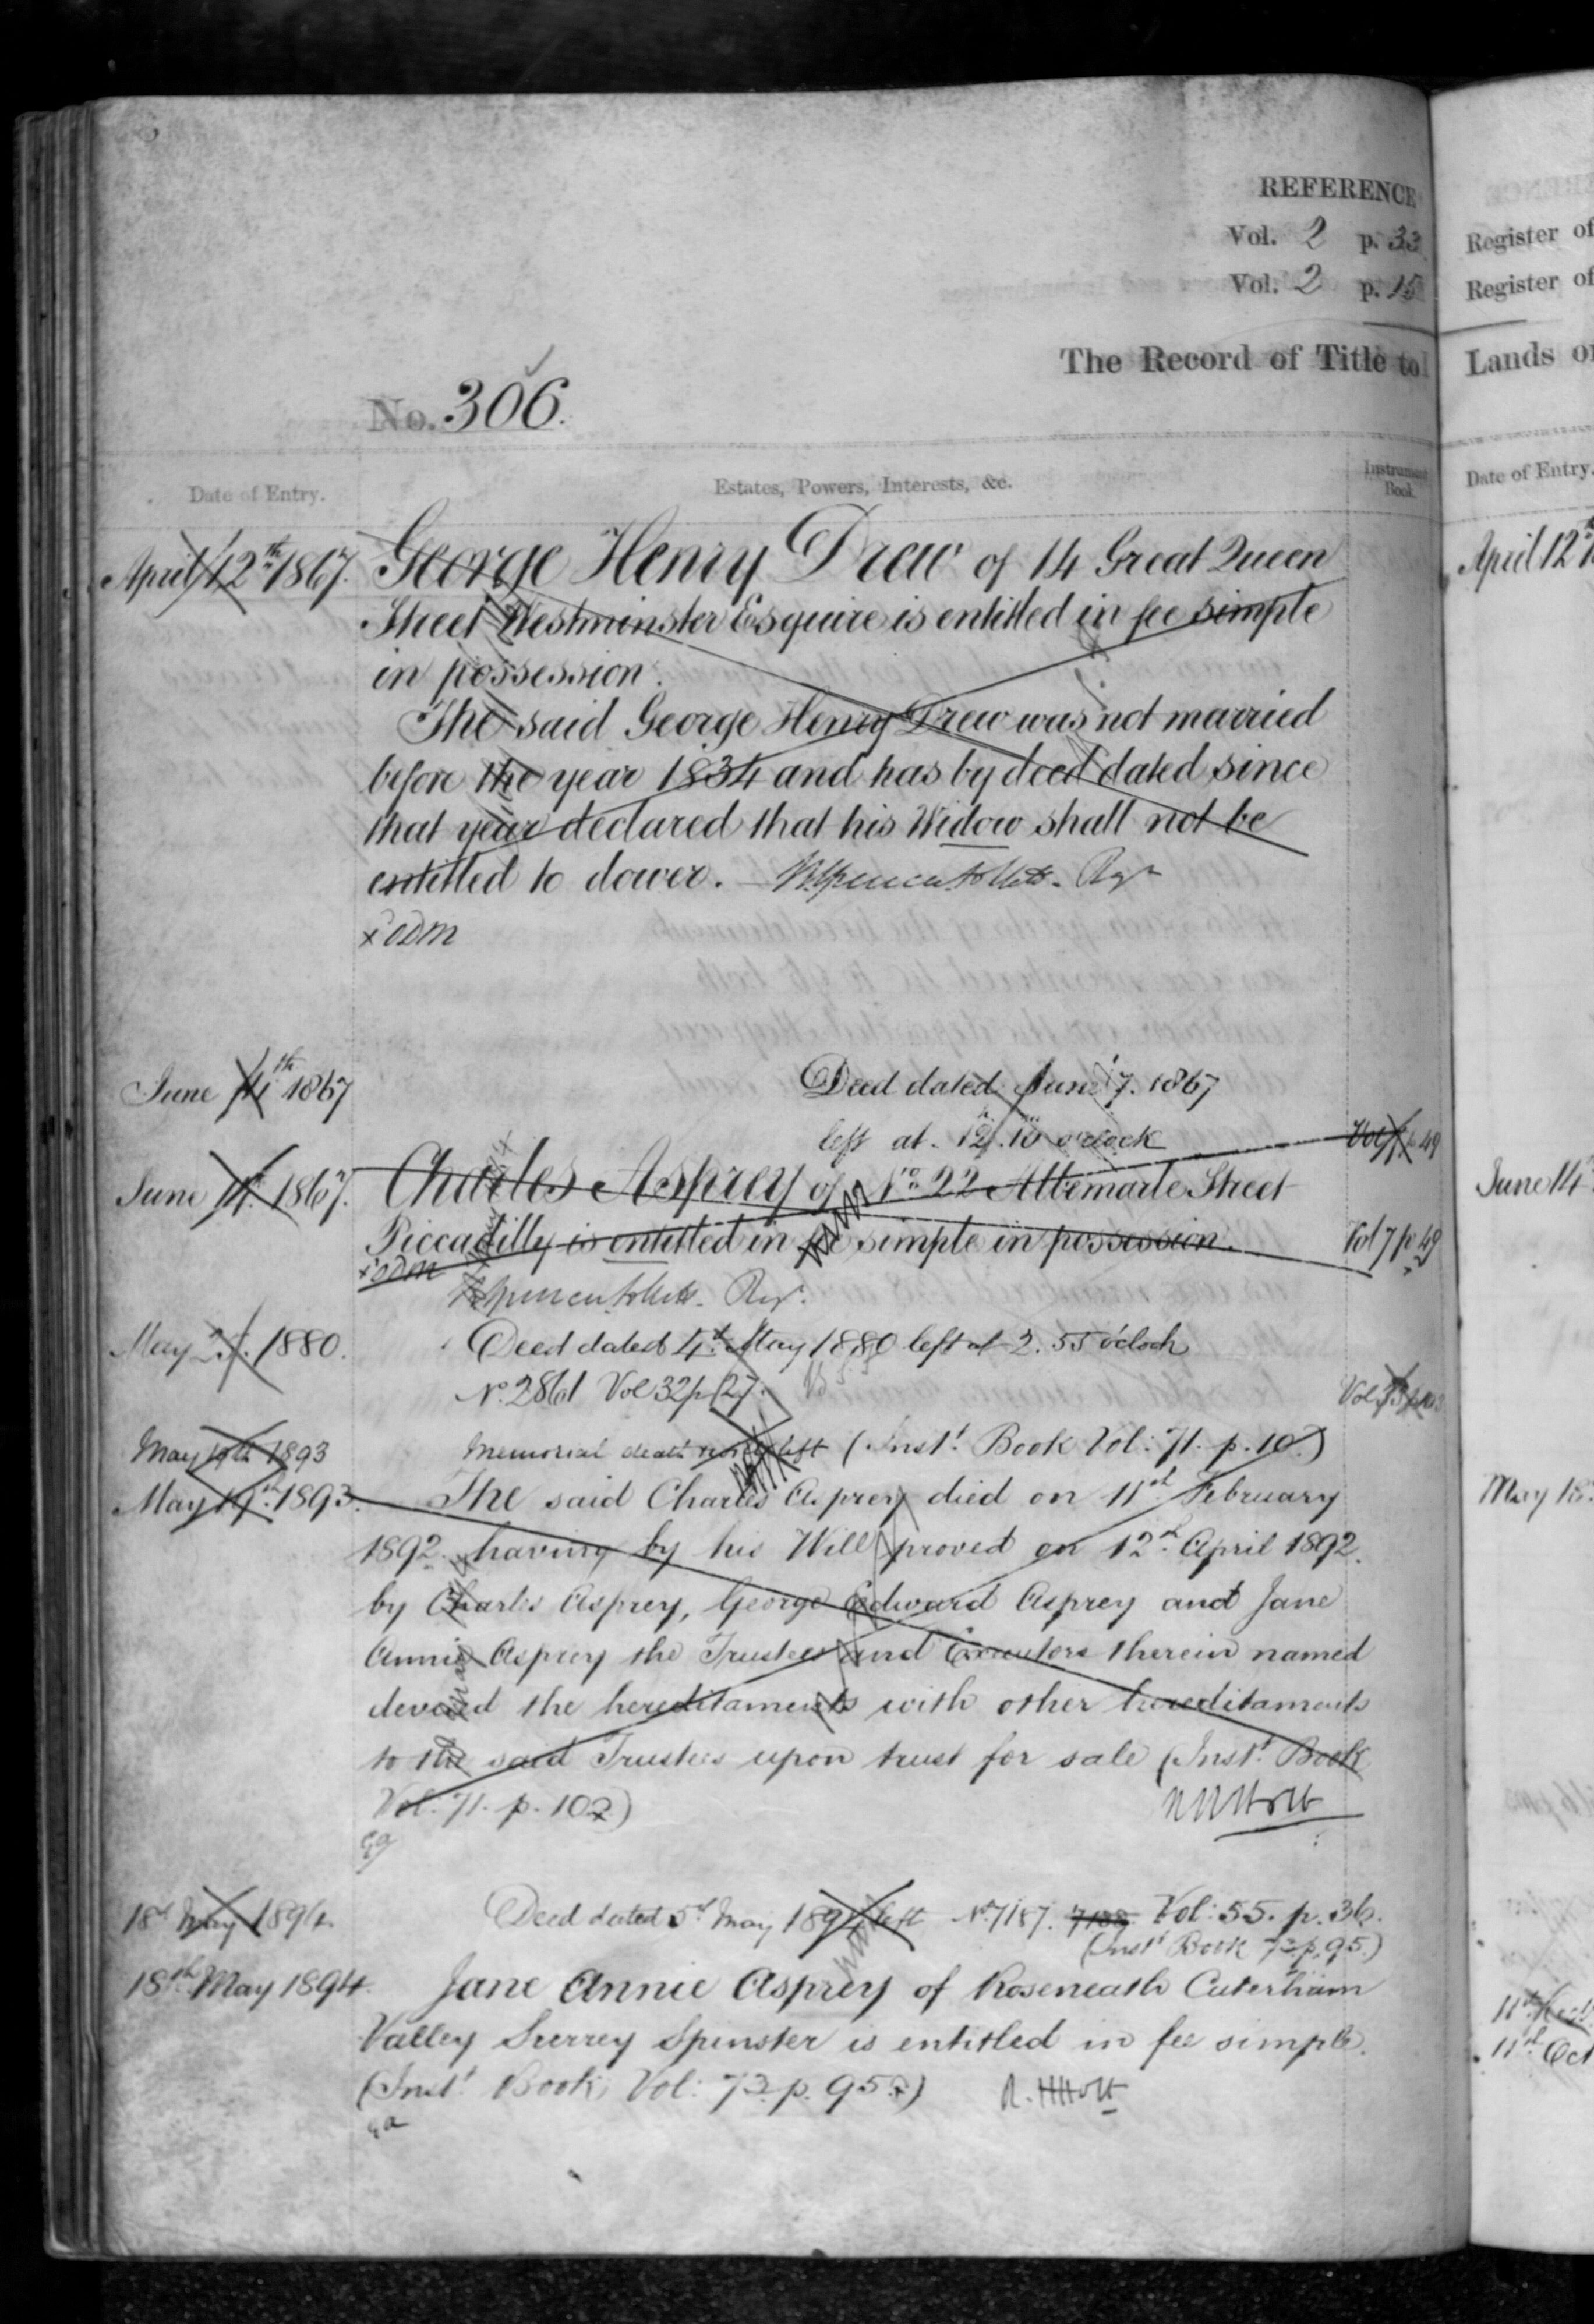 REFERENCE
Vol. 2 p. 33
Vol. 2 p. 15
The Record of Title to
No. 306.
Date of Entry.
Estates, Powers, Interests, &c.
Instrument
Book.
April 12th 1867. George Henry Drew of 14 Great Queen
Street Westminster Esquire is entitled in fee simple
in possession.
The said George Henry Drew was not married
before the year 1834 and has by deed dated since
that year declared that his Widow shall not be
entitled to dower. Regr
x ODM
June 14th 1867 Deed dated June 7. 1867
left at 12.10 o'clock Vol 7 p 49
June 14. 1867. Charles Asprey of No. 22 Albemarle Street
Piccadilly is entitled in fee simple in possession. Vol 7 p 49
x ODM
Regr.
May 1880. Deed dated 4th May 1880 left at 2.55 o'clock
No. 2861 Vol 32 p 27.
May 19th 1893 Memorial death left (Inst. Book Vol: 71. p. 10)
May 19th 1893. The said Charles Asprey died on 11th February
1892 having by his Will proved on 12th April 1892
by Charles Asprey, George Edward Asprey and Jane
Annie Asprey the Trustees and Executors therein named
devised the hereditaments with other hereditaments
to the said Trustees upon trust for sale (Inst. Book
Vol. 71. p. 102)
18th May 1894. Deed dated 5th May 1894 left No. 7187. 7188 Vol: 55. p. 36.
(Inst. Book 73 p. 95.)
18th May 1894. Jane Annie Asprey of Roseneath Caterham
Valley Surrey Spinster is entitled in fee simple.
(Inst. Book Vol: 73 p. 95) R. H Holt
Register of
Register of
Lands or
Date of Entry.
April 12th
June 14
May 18
11th Oct